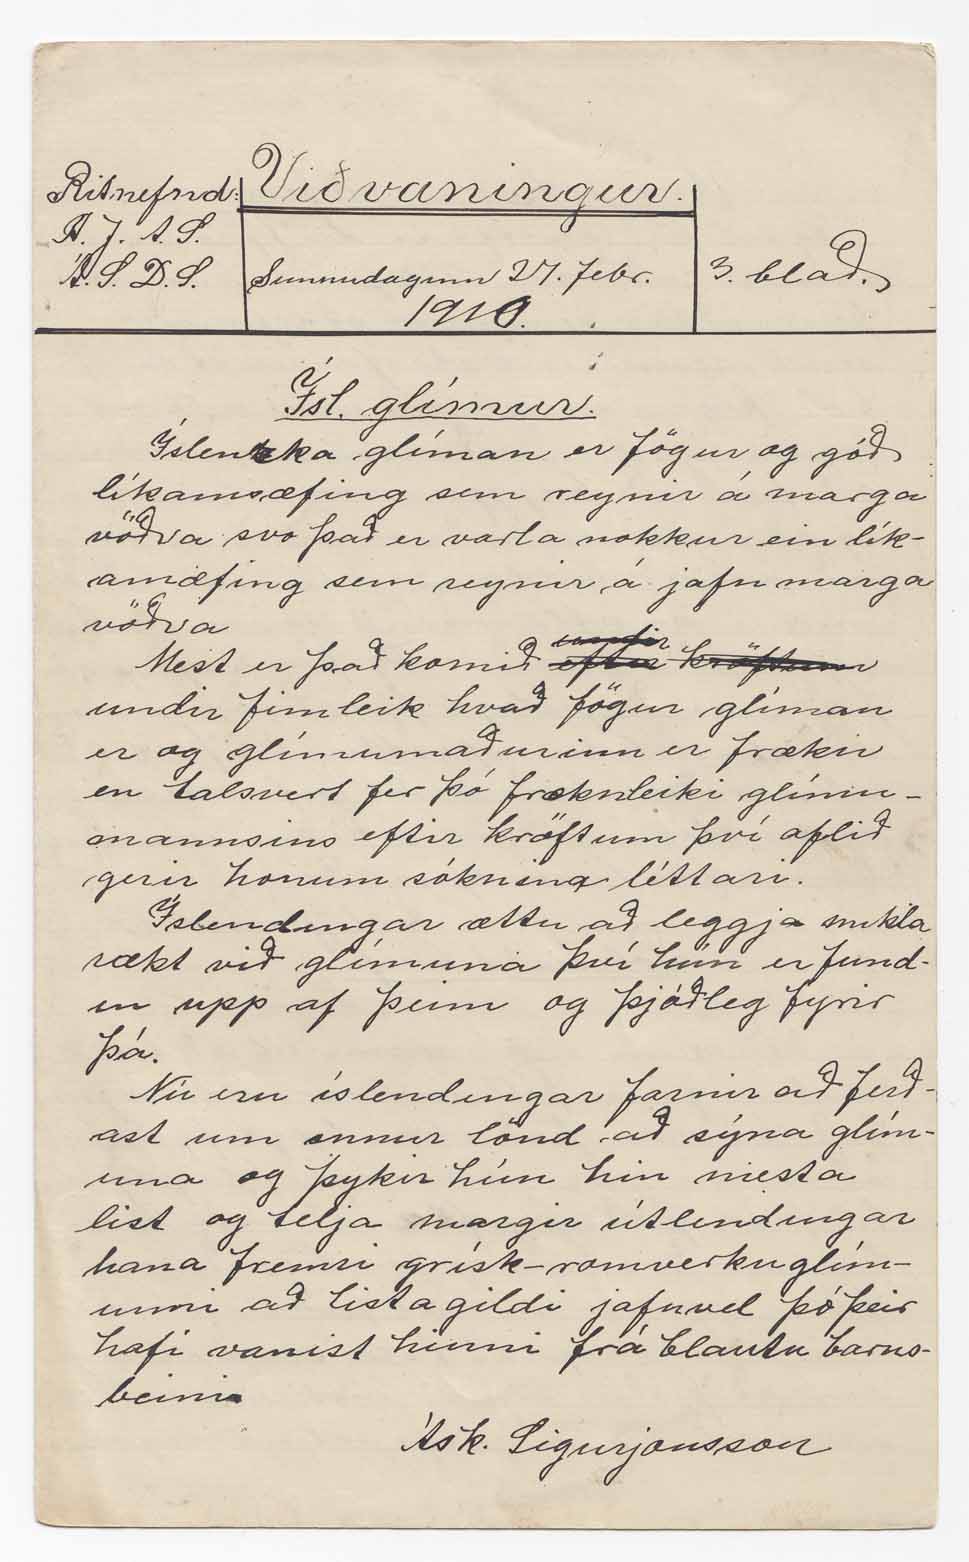 Ritnefnd:
Á. J. A. S.
Á. S. D. S.
Viðvaningur.
Sunnudaginn 27. febr.
1910.
3. blað.
Ísl. glímur.
Íslenzka glíman er fögur og góð
líkamsæfing sem reynir á marga
vöðva svo það er varla nokkur ein lík-
amæfing sem reynir á jafn marga
vöðva
undir
Mest er það komið eftir kröftum
undir fimleik hvað fögur glíman
er og glímumaðurinn er frækin
en talsvert fer þó fræknleiki glímu-
mannsins eftir kröftum því aflið
gerir honum sóknina léttari.
Íslendingar ættu að leggja mikla
rækt við glímuna því hún er fund-
in upp af þeim og þjóðleg fyrir
þá.
Nú eru íslendingar farnir að ferð-
ast um önnur lönd að sýna glím-
una og þykir hún hin mesta
list og telja margir útlendingar
hana fremri grísk-romverkuglím-
unni að listagildi jafnvel þó þeir
hafi vanist hinni frá blautu barns-
beini
Ásk. Sigurjonsson